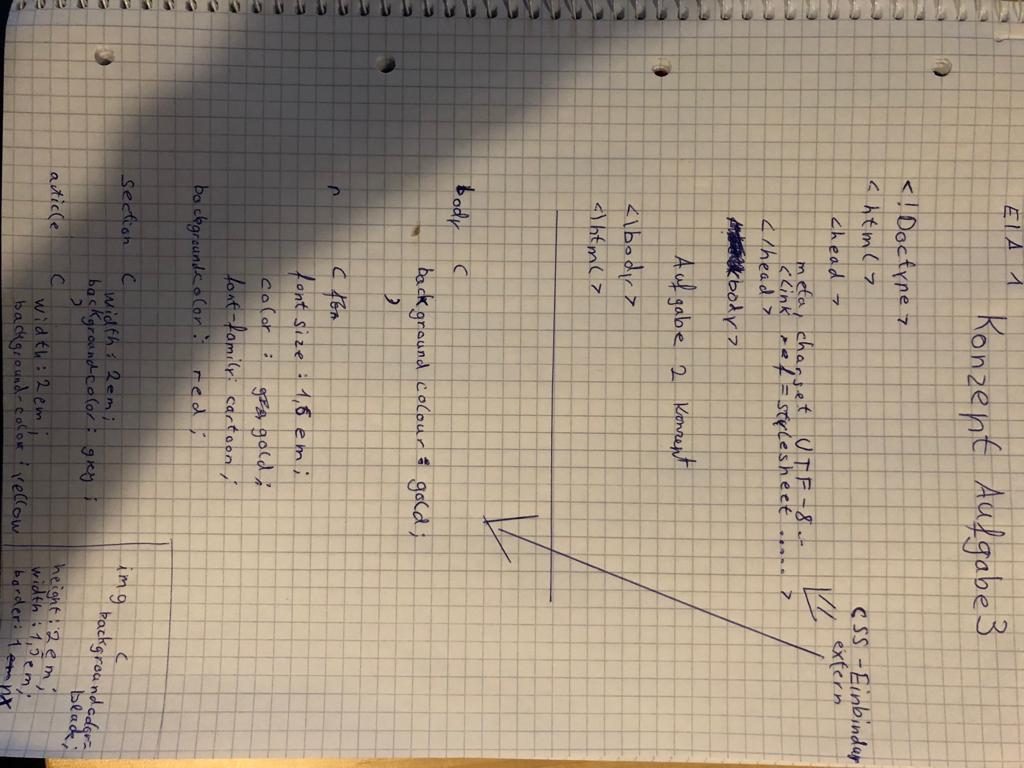 EIA 1
Konzept Aufgabe 3
<!Doctype>
<html>
<head>
CSS-Einbindun
extern
meta, charset UTF-8..
<link ref=stylesheet ..... >
</head>
<body>
Aufgabe 2 Konzept
<\body>
<\html>
body {
background colour: gold;
}
{
font size: 1,5 em;
color: gold;
font-family: cartoon;
backgroundcolor: red;
section {
width: 2em;
backgroundcolor: grey;
}
article {
width: 2em;
background-color: yellow
img {
backgroundcolor=
black;
height: 2em;
width: 1,5em;
border: 1 px